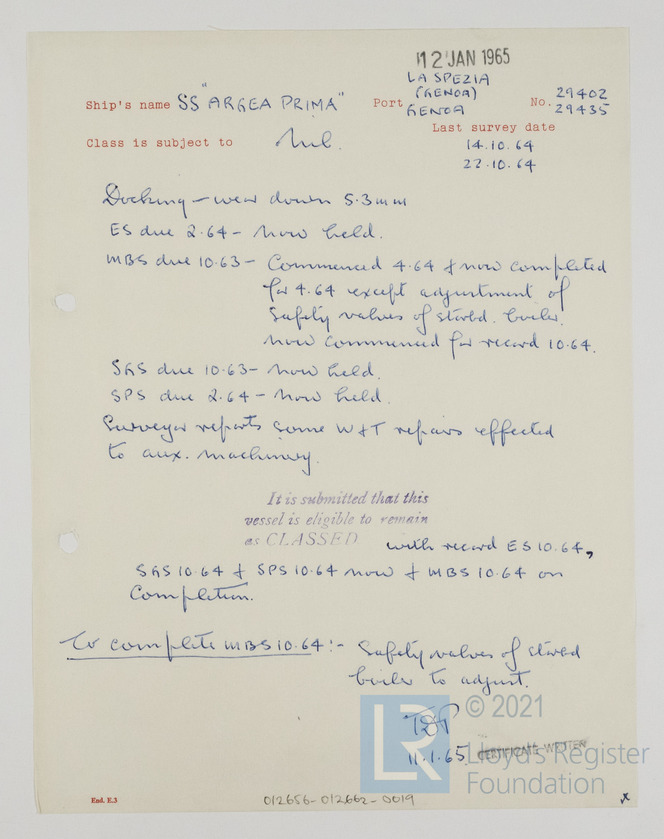 12 JAN 1965
LA SPEZIA
(GENOA)
Ship's name SS "ARGEA PRIMA" Port GENOA No. 29402
29435
Last survey date
Class is subject to Nil.
14.10.64
22.10.64
Docking - wear down 5.3mm
ES due 2.64 - Now held.
MBS due 10.63 - Commenced 4.64 & now completed
for 4.64 except adjustment of
Safety valves of starbd. boiler.
Now commenced for record 10.64.
SGS due 10.63 - Now held.
SPS due 2.64 - Now held.
Surveyor reports some W&T repairs effected
to aux. machinery.
It is submitted that this
vessel is eligible to remain
as CLASSED with record ES 10.64,
SGS 10.64 & SPS 10.64 now & MBS 10.64 on
Completion.
To complete MBS 10.64:- Safety valves of starbd
boiler to adjust.
11.1.65 CERTIFICATE WRITTEN
LR © 2021
Lloyd's Register
Foundation
End. E.3
012656-012662-0019